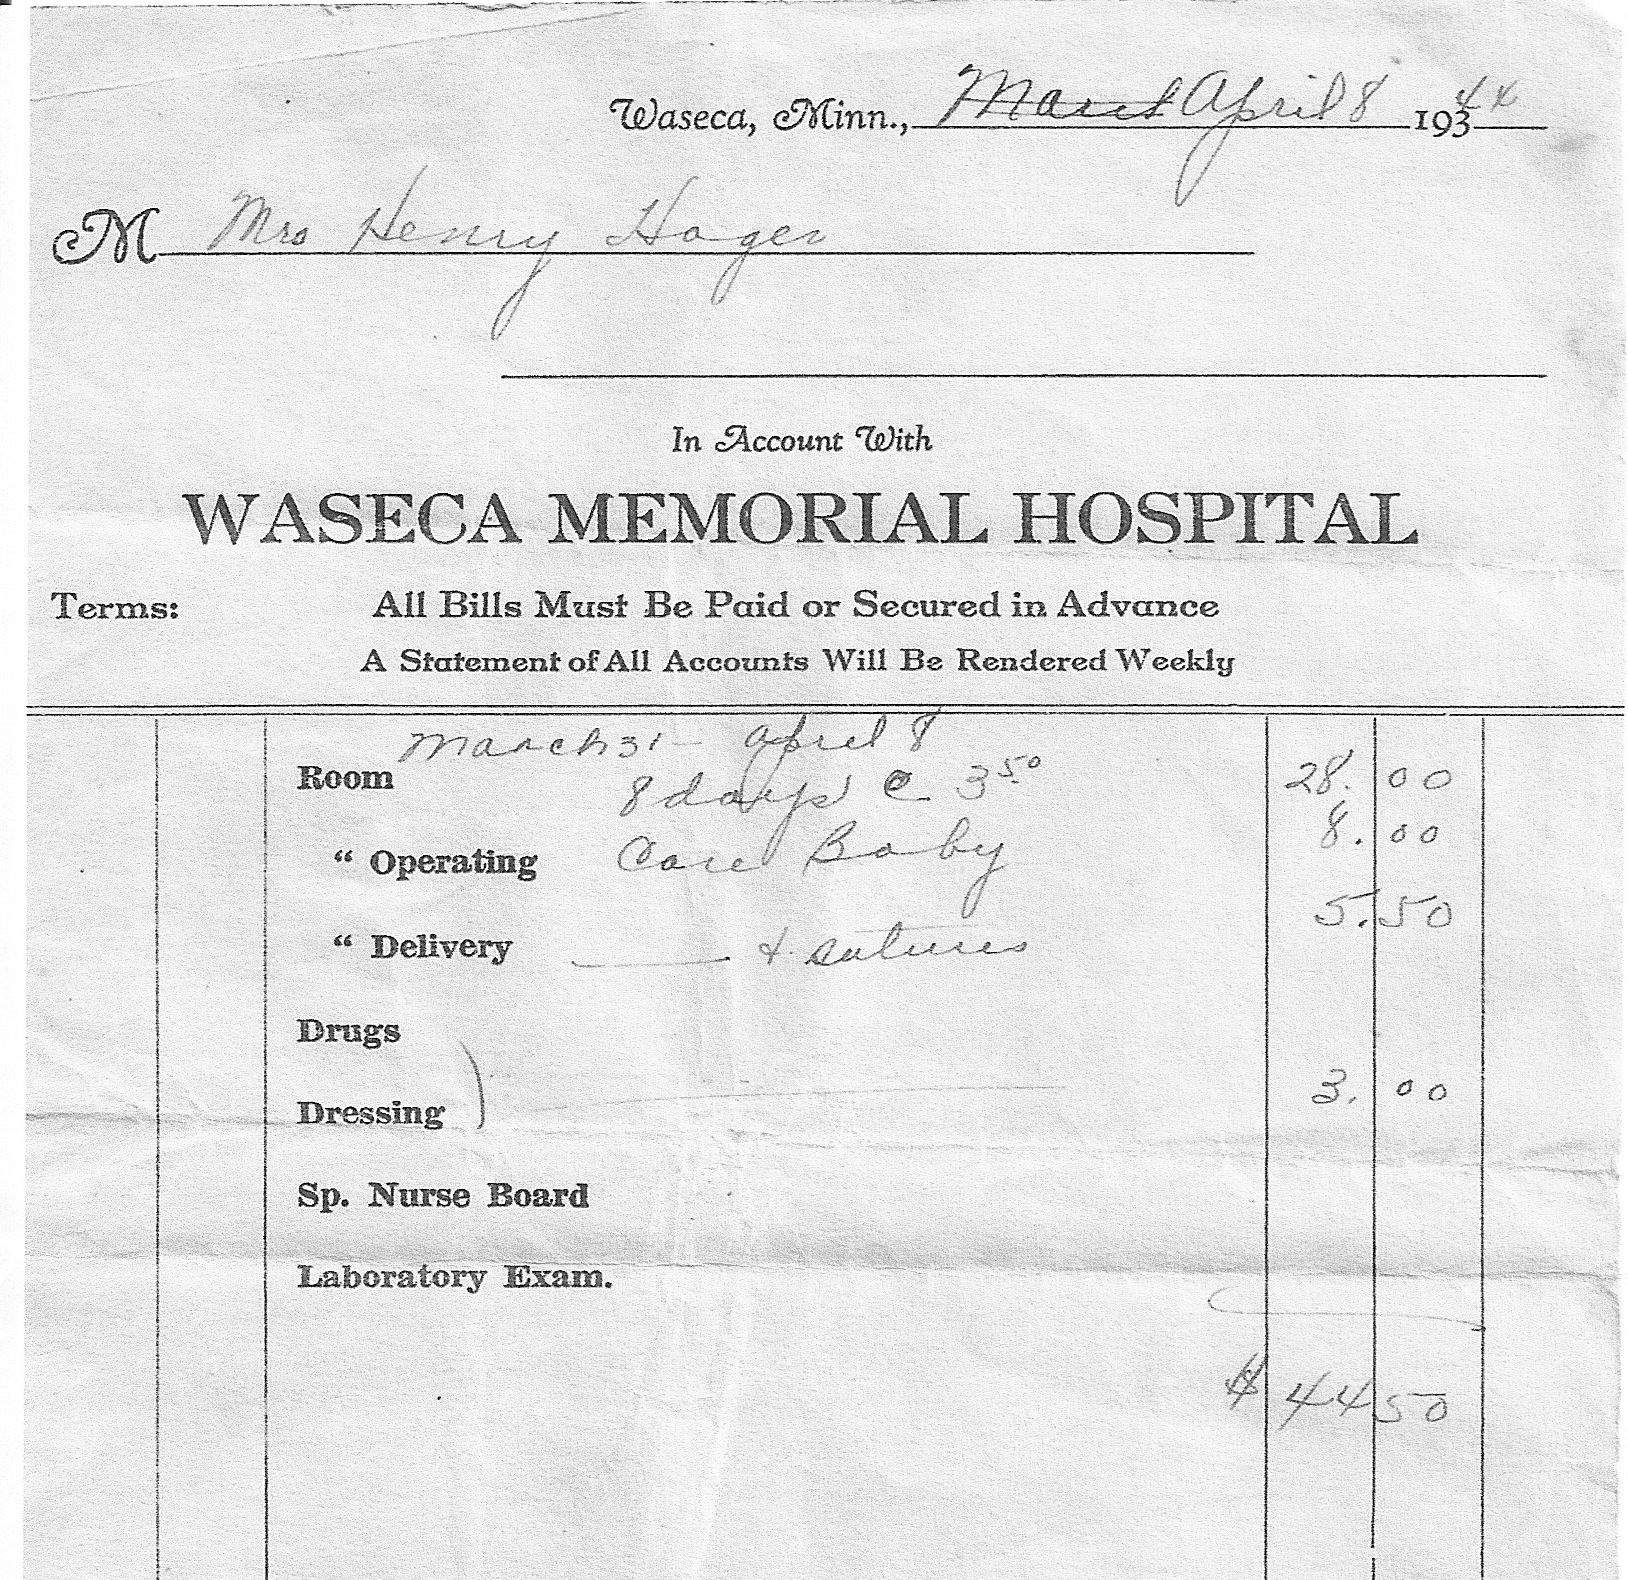 Waseca, Minn., March April 8 1944
M Mrs Henry Hager
In Account With
WASECA MEMORIAL HOSPITAL
Terms: All Bills Must Be Paid or Secured in Advance
A Statement of All Accounts Will Be Rendered Weekly
March 31 - April 8
Room 8 days @ 3.50 28.00
" Operating Care Baby 8.00
" Delivery & sutures 5.50
Drugs
Dressing 3.00
Sp. Nurse Board
Laboratory Exam.
$ 44 50